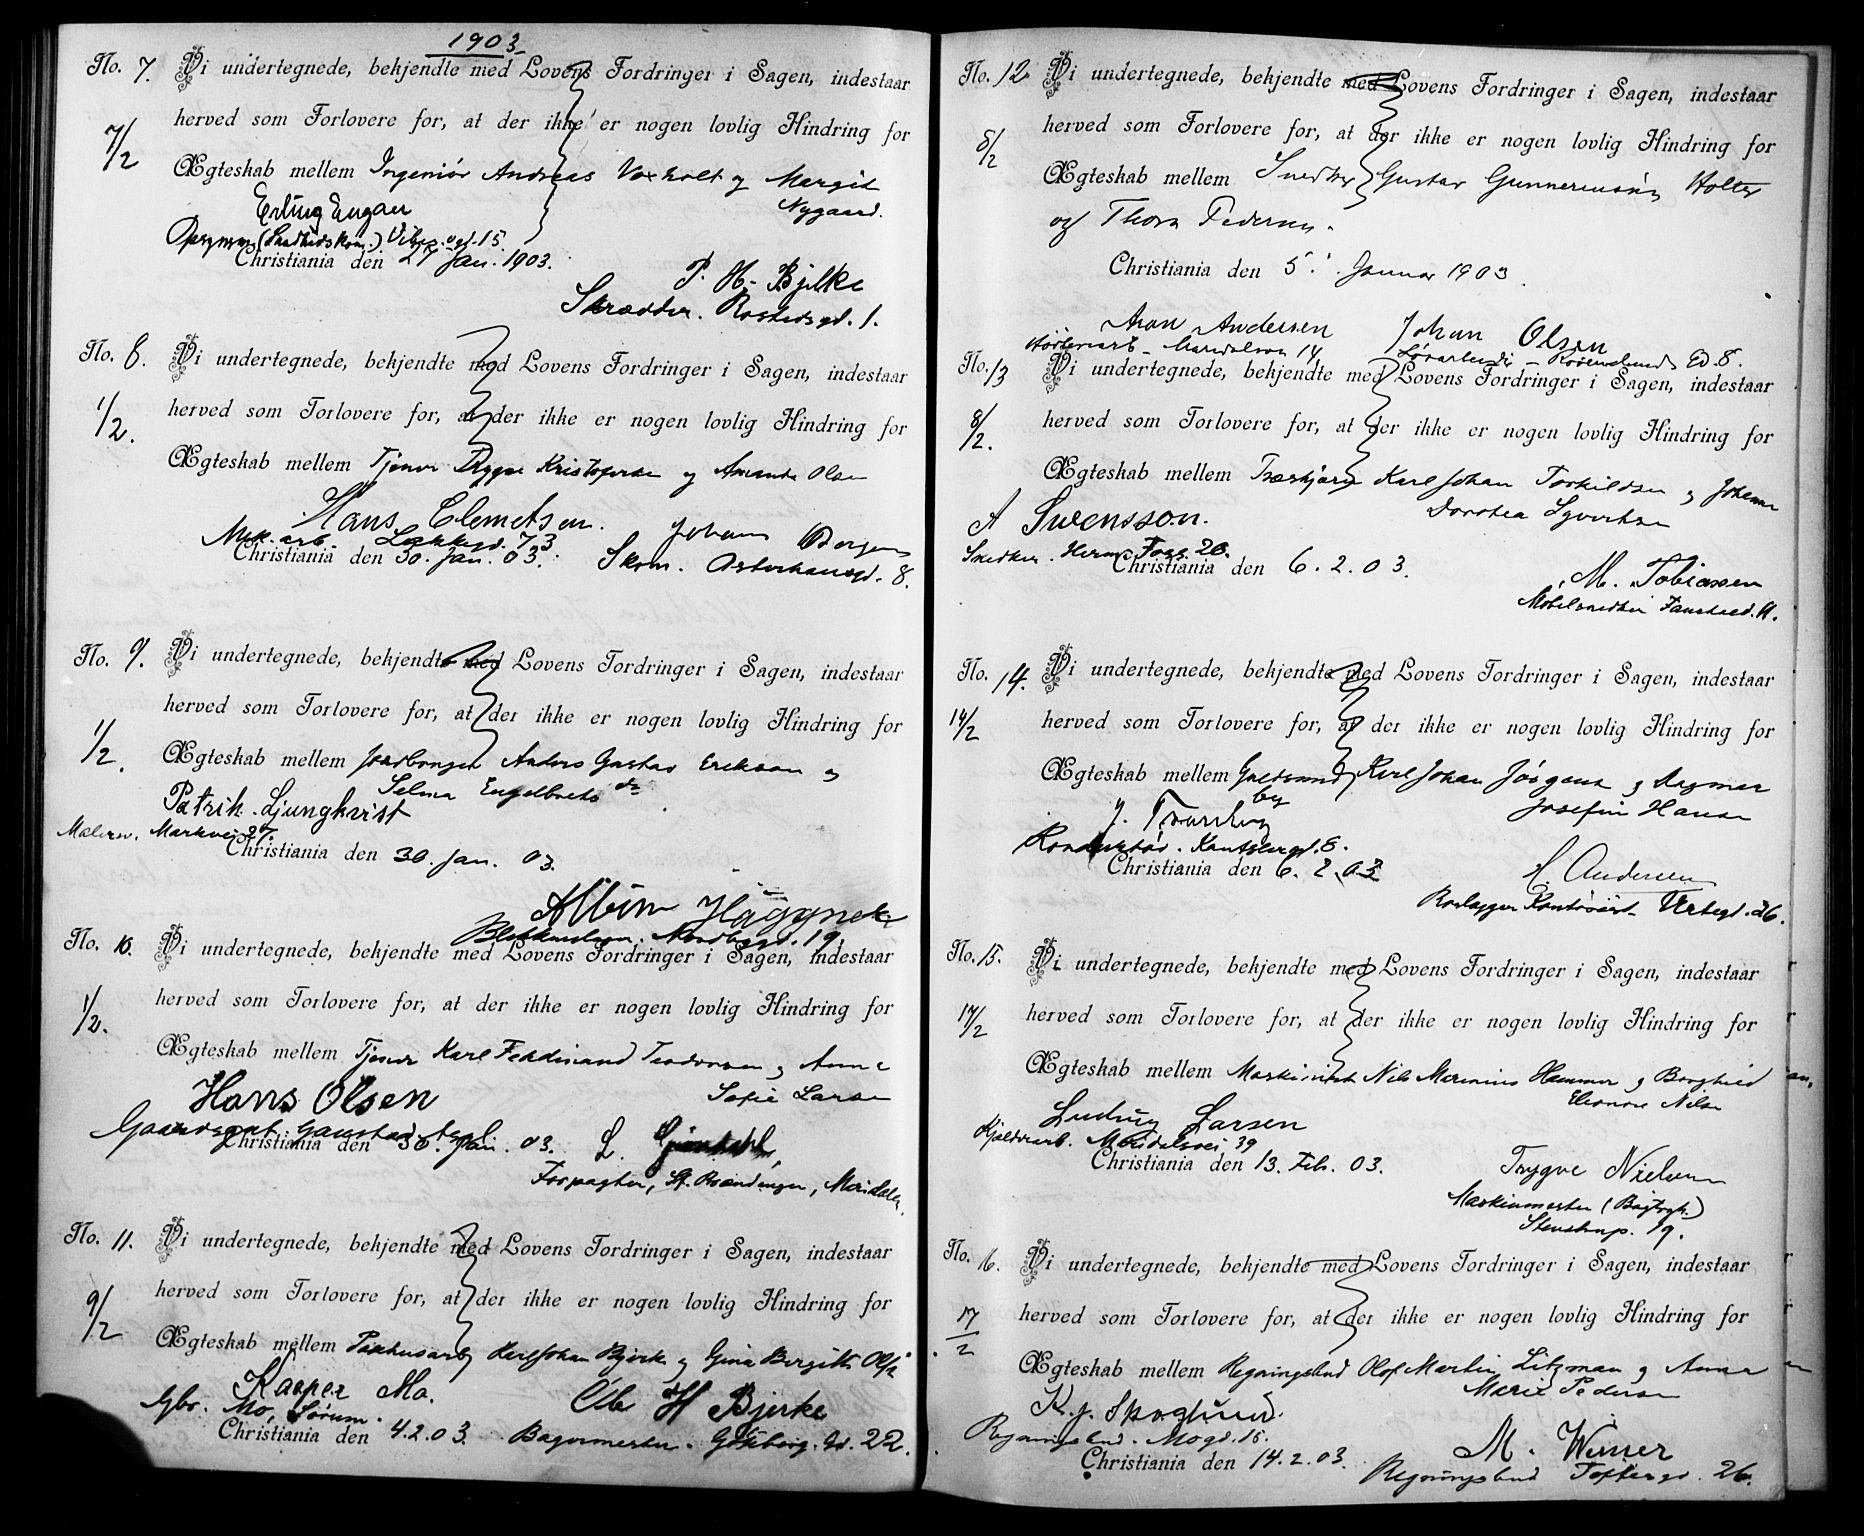 1903
No. 7. Vi undertegnede, bekjendte med Lovens Fordringer i Sagen, indestaar
7/2 herved som Forlovere for, at der ikke er nogen lovlig Hindring for
Ægteskab mellem Ingeniør Andreas Voxholt og Margit
Nygaard.
Erling Engan
15.
Christiania den 27 Jan. 1903.
P. H. Bjelke
Skrædder. Rostedsgd. 1.
No. 8. Vi undertegnede, bekjendte med Lovens Fordringer i Sagen, indestaar
1/2. herved som Forlovere for, at der ikke er nogen lovlig Hindring for
Ægteskab mellem Tjener Trygve Kristofersen og Amanda Olsen
Hans Clemetsen.
Mek. arb. Lakkegd. 73
Johans Borgen
Christiania den 30. Jan. 03. Skom. Osterhausgd. 8.
No. 9. Vi undertegnede, bekjendte med Lovens Fordringer i Sagen, indestaar
1/2. herved som Forlovere for, at der ikke er nogen lovlig Hindring for
Ægteskab mellem Anders Gustav Erikson og
Selma Engelbrets dr
Patrik Ljungkvist
Malersv. Markvei 27.
Christiania den 30. Jan. 03.
Albin Häggnek
19.
No. 10. Vi undertegnede, bekjendte med Lovens Fordringer i Sagen, indestaar
1/2. herved som Forlovere for, at der ikke er nogen lovlig Hindring for
Ægteskab mellem Tjener Karl Ferdinand Teodorsen og Anna
Sofie Larsen
Hans Olsen
Gaardsgut Gaustad Asyl
Christiania den 30. Jan. 03. L.
Forpagter, St. Brændingen, Maridalen.
No. 11. Vi undertegnede, bekjendte med Lovens Fordringer i Sagen, indestaar
9/2 herved som Forlovere for, at der ikke er nogen lovlig Hindring for
Ægteskab mellem Pakhusarb Karl Johan Bjerke og Gina Birgitte Olsen
Kasper Mo.
Gbr. Mo, Sørum.
Ole H Bjerke
Christiania den 4.2.03. Bagermester. Göteborg. Gd. 22.
No. 12 Vi undertegnede, bekjendte med Lovens Fordringer i Sagen, indestaar
8/2 herved som Forlovere for, at der ikke er nogen lovlig Hindring for
Ægteskab mellem Snedker Gustav Gunneriusen Holter
og Thora Pedersen.
Christiania den 5. Januar 1903.
Aron Andersen Johan Olsen
Maridalsv 14. Gd. 8.
No. 13 Vi undertegnede, bekjendte med Lovens Fordringer i Sagen, indestaar
8/2. herved som Forlovere for, at der ikke er nogen lovlig Hindring for
Ægteskab mellem Træskjærer Karl Johan Torkildsen og Johanne
Dorothea Syvertsen
A Swensson.
Snedker. Herm. Foss. 20.
Christiania den 6.2.03.
M. Tobiassen
Møbelsnedker
No. 14. Vi undertegnede, bekjendte med Lovens Fordringer i Sagen, indestaar
14/2 herved som Forlovere for, at der ikke er nogen lovlig Hindring for
Ægteskab mellem Karl Johan Jörgensen og Dagmar
Josefine Hansen
Konduktør. 8.
Christiania den 6.2.03
H. Andersen
Urtegd. 26.
No. 15. Vi undertegnede, bekjendte med Lovens Fordringer i Sagen, indestaar
17/2 herved som Forlovere for, at der ikke er nogen lovlig Hindring for
Ægteskab mellem Maskinist Nils Marinius Hammer og Borghild
Eleonore Nilsen
Ludvig Larsen
Kjelderarb. Maridalsvei 39
Christiania den 13. Feb. 03.
Trygve Nielsen
Maskinmester
Stenstrup. 19.
No. 16. Vi undertegnede, bekjendte med Lovens Fordringer i Sagen, indestaar
17/2 herved som Forlovere for, at der ikke er nogen lovlig Hindring for
Ægteskab mellem Regningsbud Olof Martin Litzman og Anna
Marie Pedersen
K. J. Skoglund.
Regningsbud. Mogd. 15.
Christiania den 14.2.03.
M. Werner
Regningsbud Toftesgd. 26.